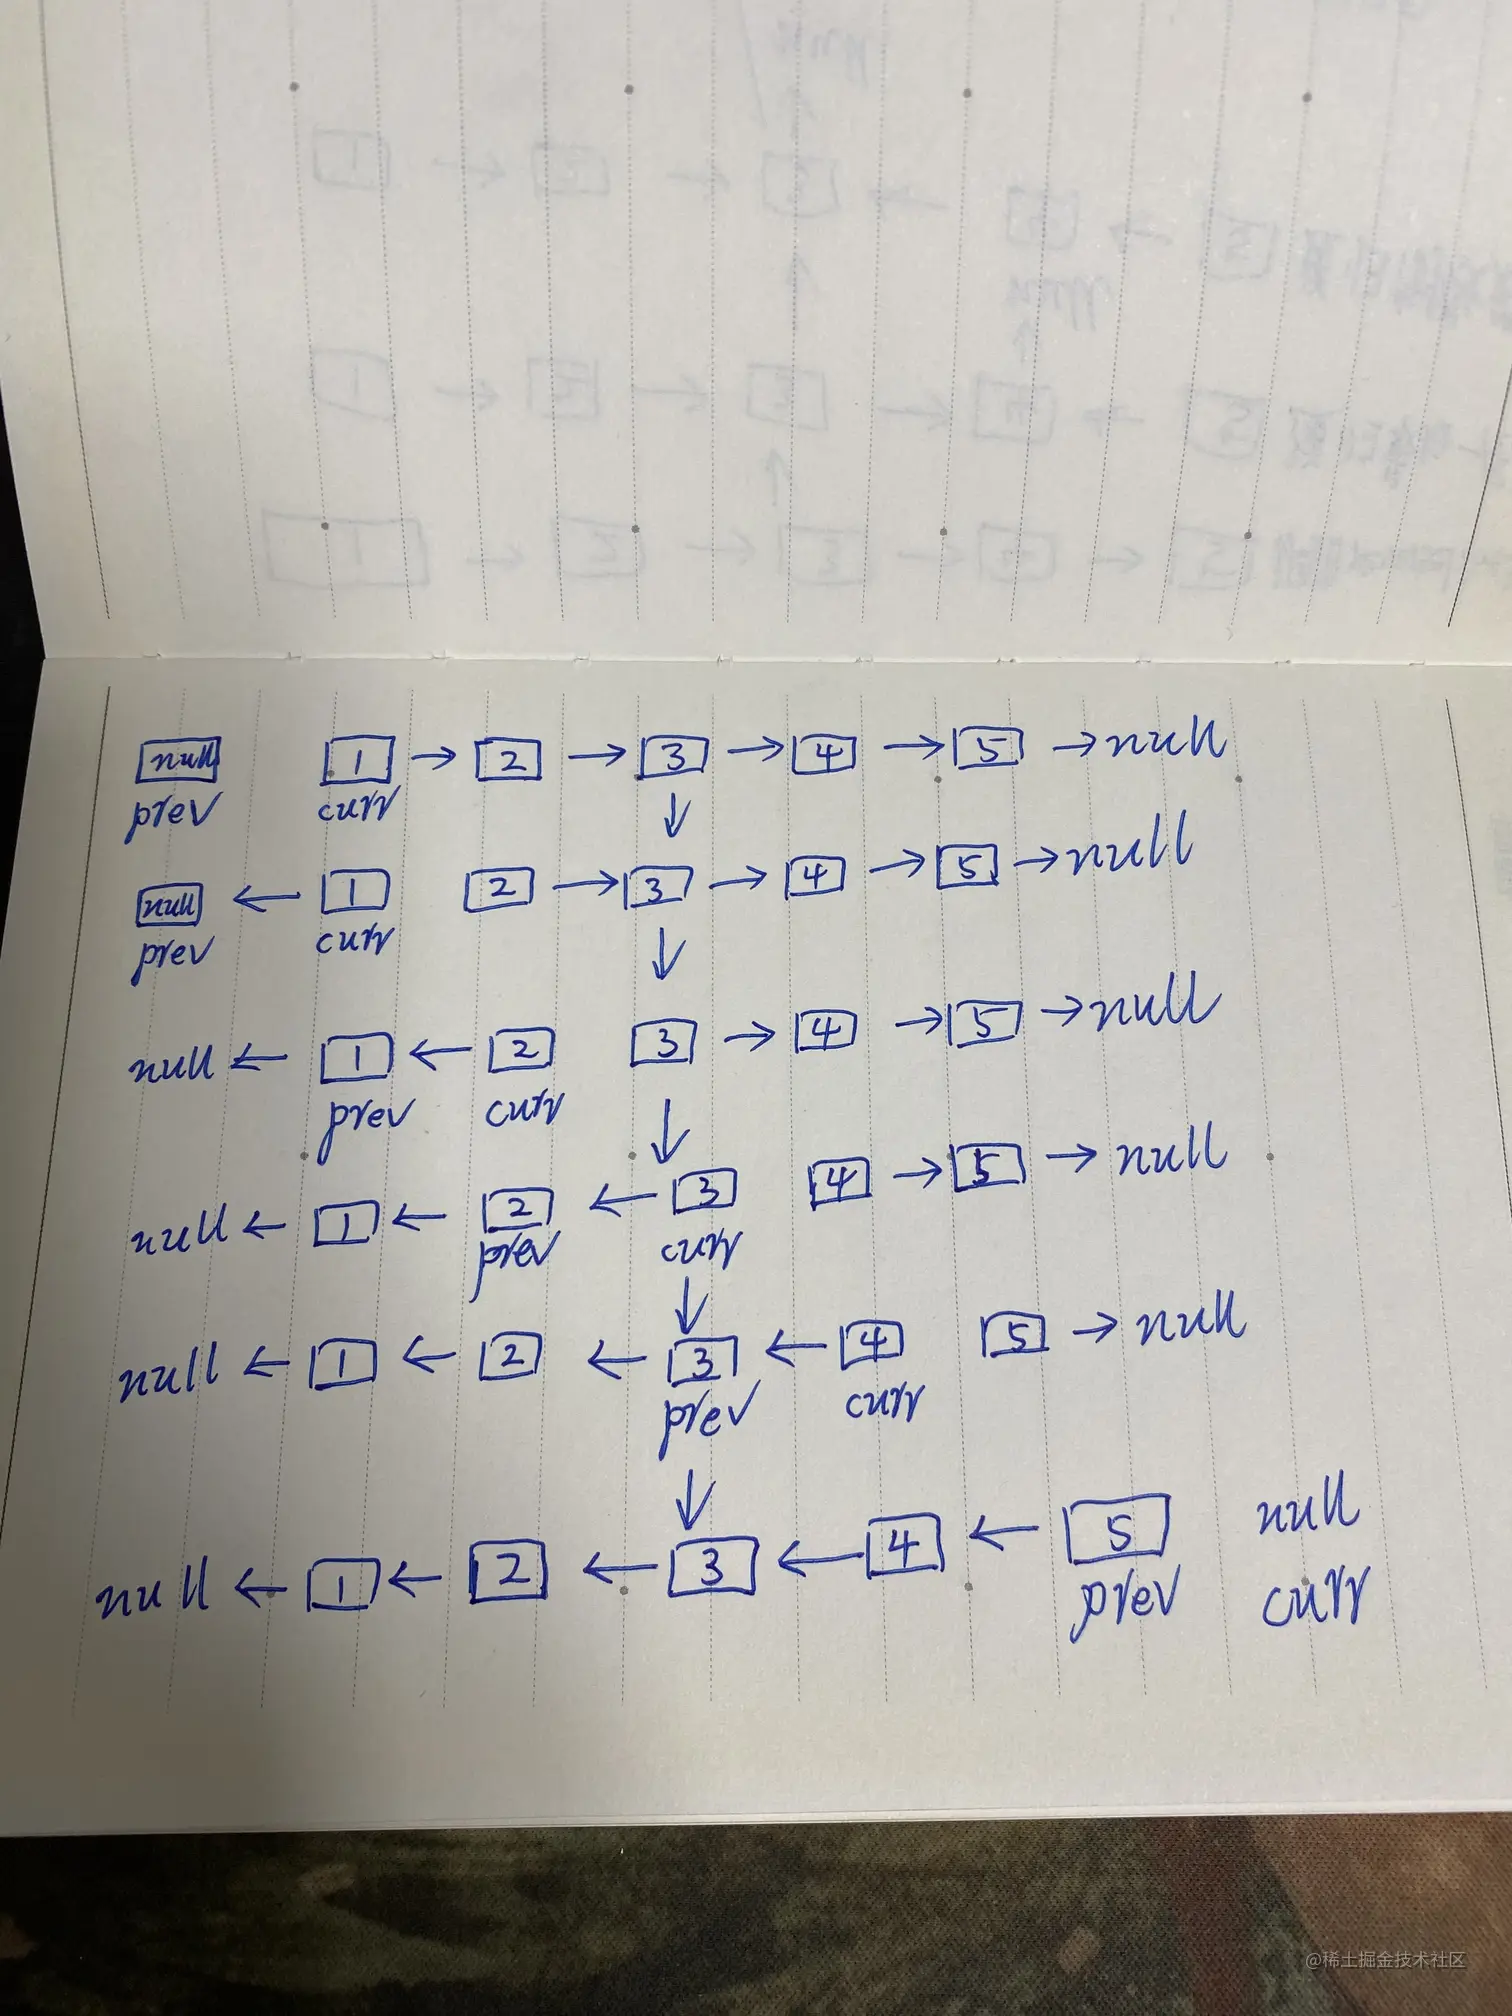 null 1 → 2 → 3 → 4 → 5 → null
prev curr
↓
null ← 1 2 → 3 → 4 → 5 → null
prev curr
↓
null ← 1 ← 2 3 → 4 → 5 → null
prev curr
↓
null ← 1 ← 2 ← 3 4 → 5 → null
prev curr
↓
null ← 1 ← 2 ← 3 ← 4 5 → null
prev curr
↓
null ← 1 ← 2 ← 3 ← 4 ← 5 null
prev curr
@稀土掘金技术社区